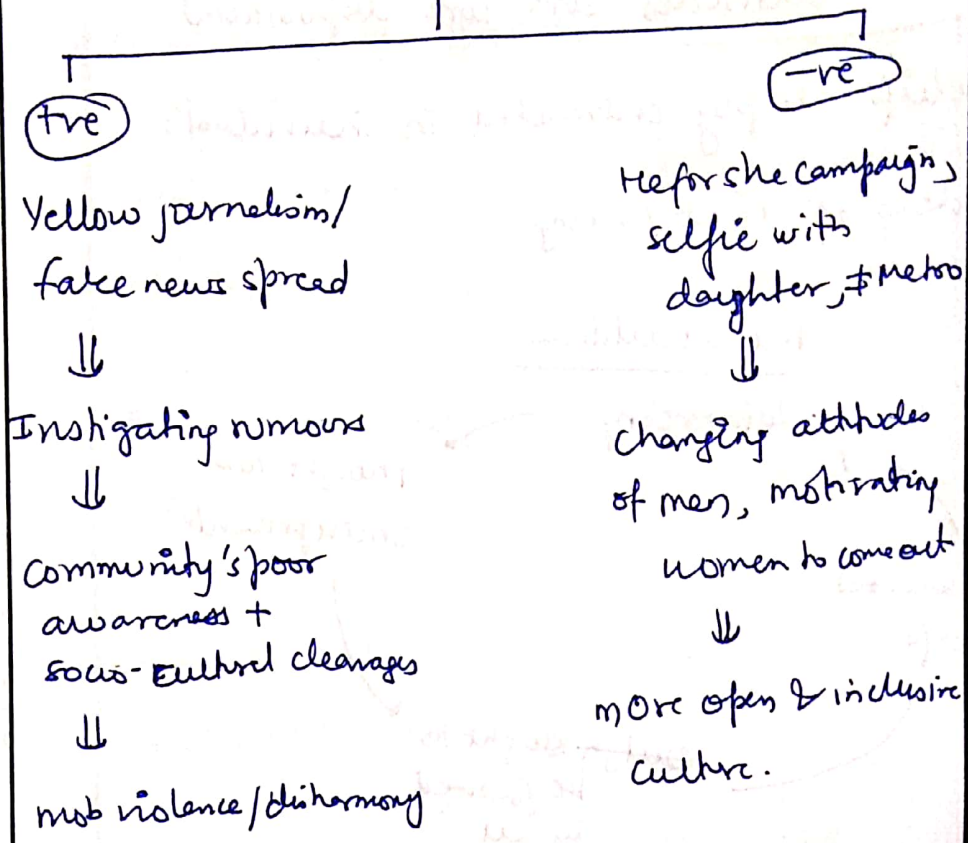 +ve
Yellow journalism/
fake news spread
⇓
Instigating rumours
⇓
Community's poor
awareness +
socio-cultural cleavages
⇓
mob violence/disharmony
-ve
Heforshe campaign,
selfie with
daughter, #Metoo
⇓
changing attitudes
of men, motivating
women to come out
⇓
more open & inclusive
culture.